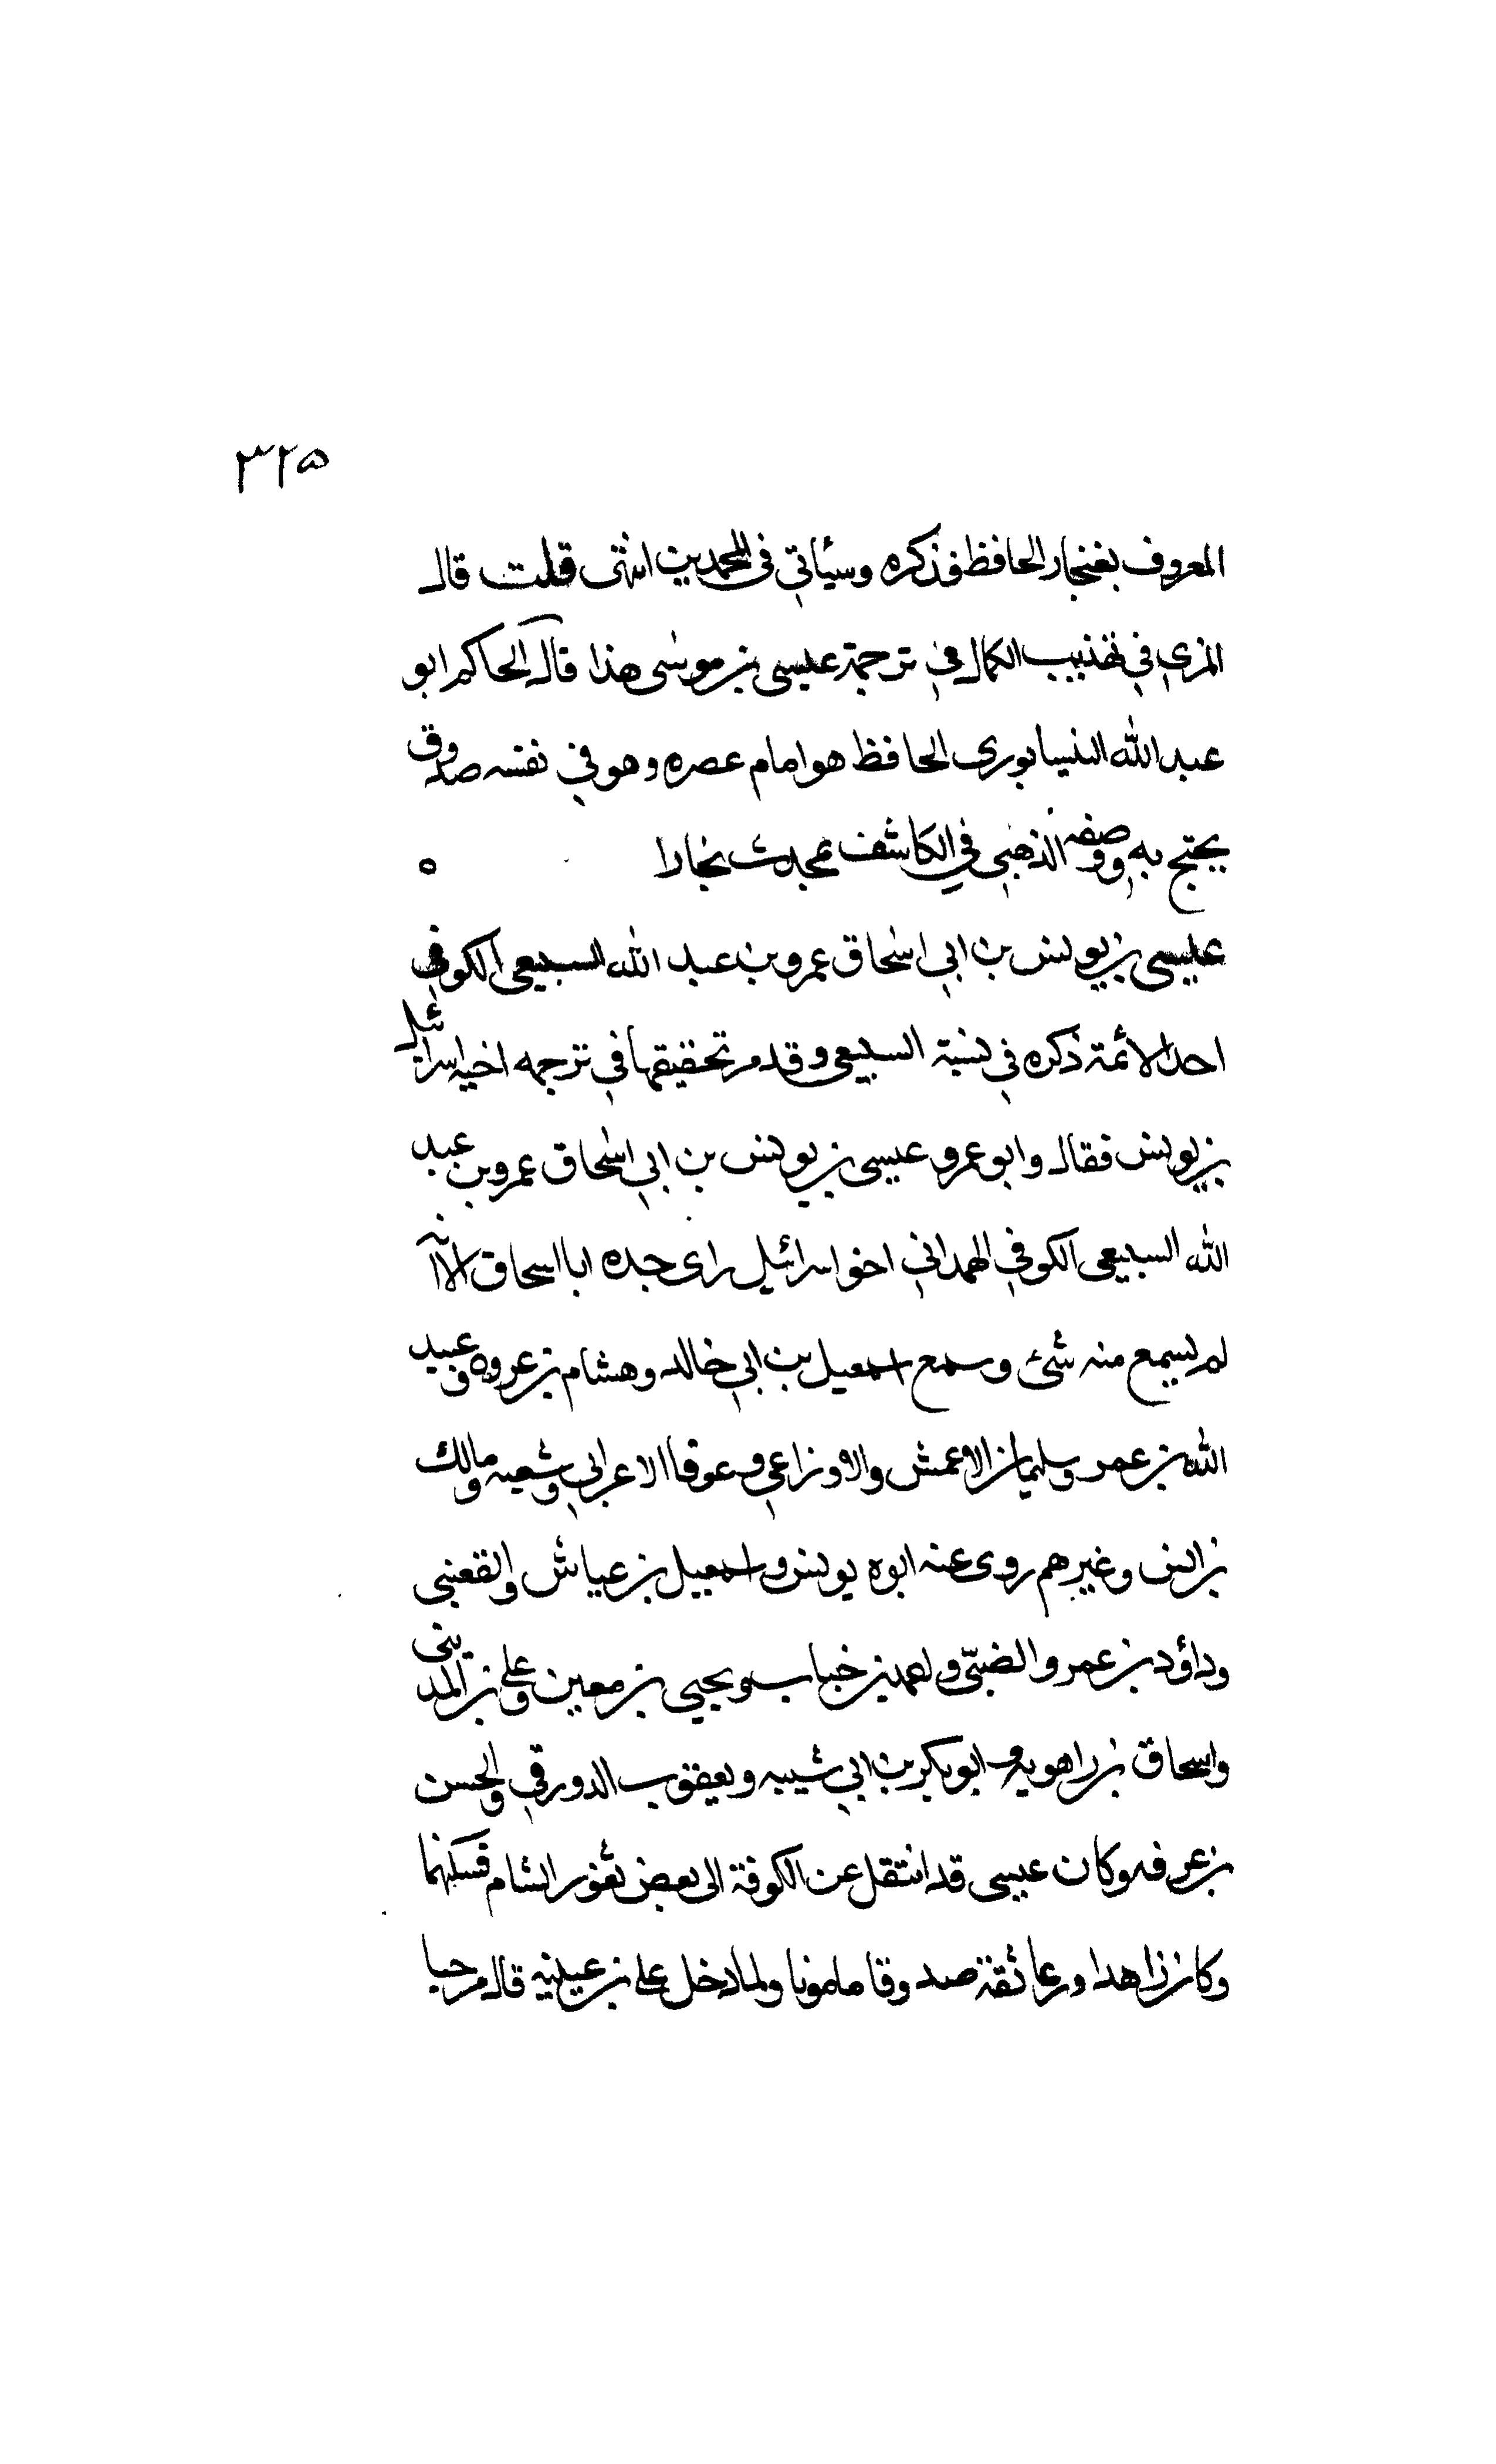 ٣٢٥
المعروف بغنجار الحافظ فذكره وسيأتي في المحمدين انتهى قلت قال
المزي في تهذيب الكمال في ترجمة عيسى بن موسى هذا قال الحاكم ابو
عبد الله النيسابوري الحافظ هو امام عصره وهو في نفسه صدوق
يحتج به ووصفه الذهبي في الكاشف بمحدث بخارا ه
عيسى بن يونس بن ابي اسحاق عمرو بن عبد الله السبيعي الكوفي
احد الائمة ذكره في نسبة السبيعي وقد مر تحقيقها في ترجمه اخيه اسرائيل
بن يونس فقال وابو عمرو عيسى بن يونس بن ابي اسحاق عمرو بن عبد
الله السبيعي الكوفي الهمداني اخو اسرائيل رأى جده ابا اسحاق الا انه
لم يسمع منه شئ وسمع اسمعيل بن ابي خالد وهشام بن عروه وعبيد
الله بن عمر وسليمان الاعمش والاوزاعي وعوفا الاعرابي وشعبه ومالك
بن انس وغيرهم روى عنه ابوه يونس واسمعيل بن عياش والقعنبي
وداؤد بن عمرو الضبيّ و بن خباب ويحيى بن معين وعلي بن المديني
واسحاق بن راهويه وابو بكر بن ابي شيبه ويعقوب الدورقي والحسن
بن عرفه وكان عيسى قد انتقل عن الكوفة الى بعض ثغور الشام فسكنها
وكان زاهدا ورعا ثقة صدوقا مامونا ولما دخل على بن عيينه قال مرحبا